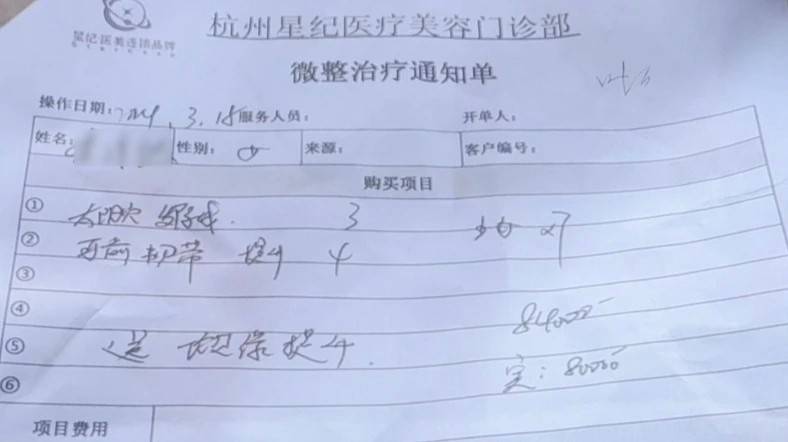 杭州星纪医疗美容门诊部
星纪医美连锁品牌
微整治疗通知单
操作日期: 3.15 服务人员: 开单人:
姓名: 性别: 女 来源: 客户编号:
购买项目
① 3
② 面前韧带 提升 4
③
④ 84000
⑤ 送 提升
⑥ 实: 80000
项目费用